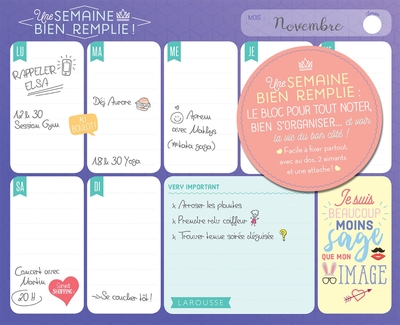 Une SEMAINE
BIEN REMPLIE !
MOIS
Novembre
LU
MA
ME
JE
RAPPELER
ELSA
12 h 30
Session Gym
AU
BOULOT!
Déj Aurore
18 h 30 Yoga
Aprem
avec
Une SEMAINE
BIEN REMPLIE :
LE BLOC POUR TOUT NOTER,
BIEN S'ORGANISER... et voir
la vie du bon côté !
Facile à fixer partout,
avec au dos, 2 aimants
et une attache !
SA
DI
Concert avec
Martin
20 H
SHOPPING
Se coucher tôt!
VERY IMPORTANT
x Arroser les plantes
x Prendre rdv coiffeur
x Trouver tenue soirée déguisée
LAROUSSE
Je suis
BEAUCOUP
MOINS
sage
QUE MON
IMAGE